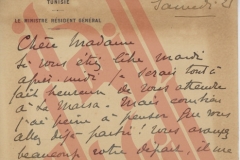 TUNISIE
LE MINISTRE RÉSIDENT GÉNÉRAL
Samedi
Chère Madame
Si vous étiez libre mardi
après-midi je serais tout à
fait heureux de vous attendre
à La Marsa - Mais combien
j'ai peine à penser que vous
allez déjà partir! vous
beaucoup votre départ, il me